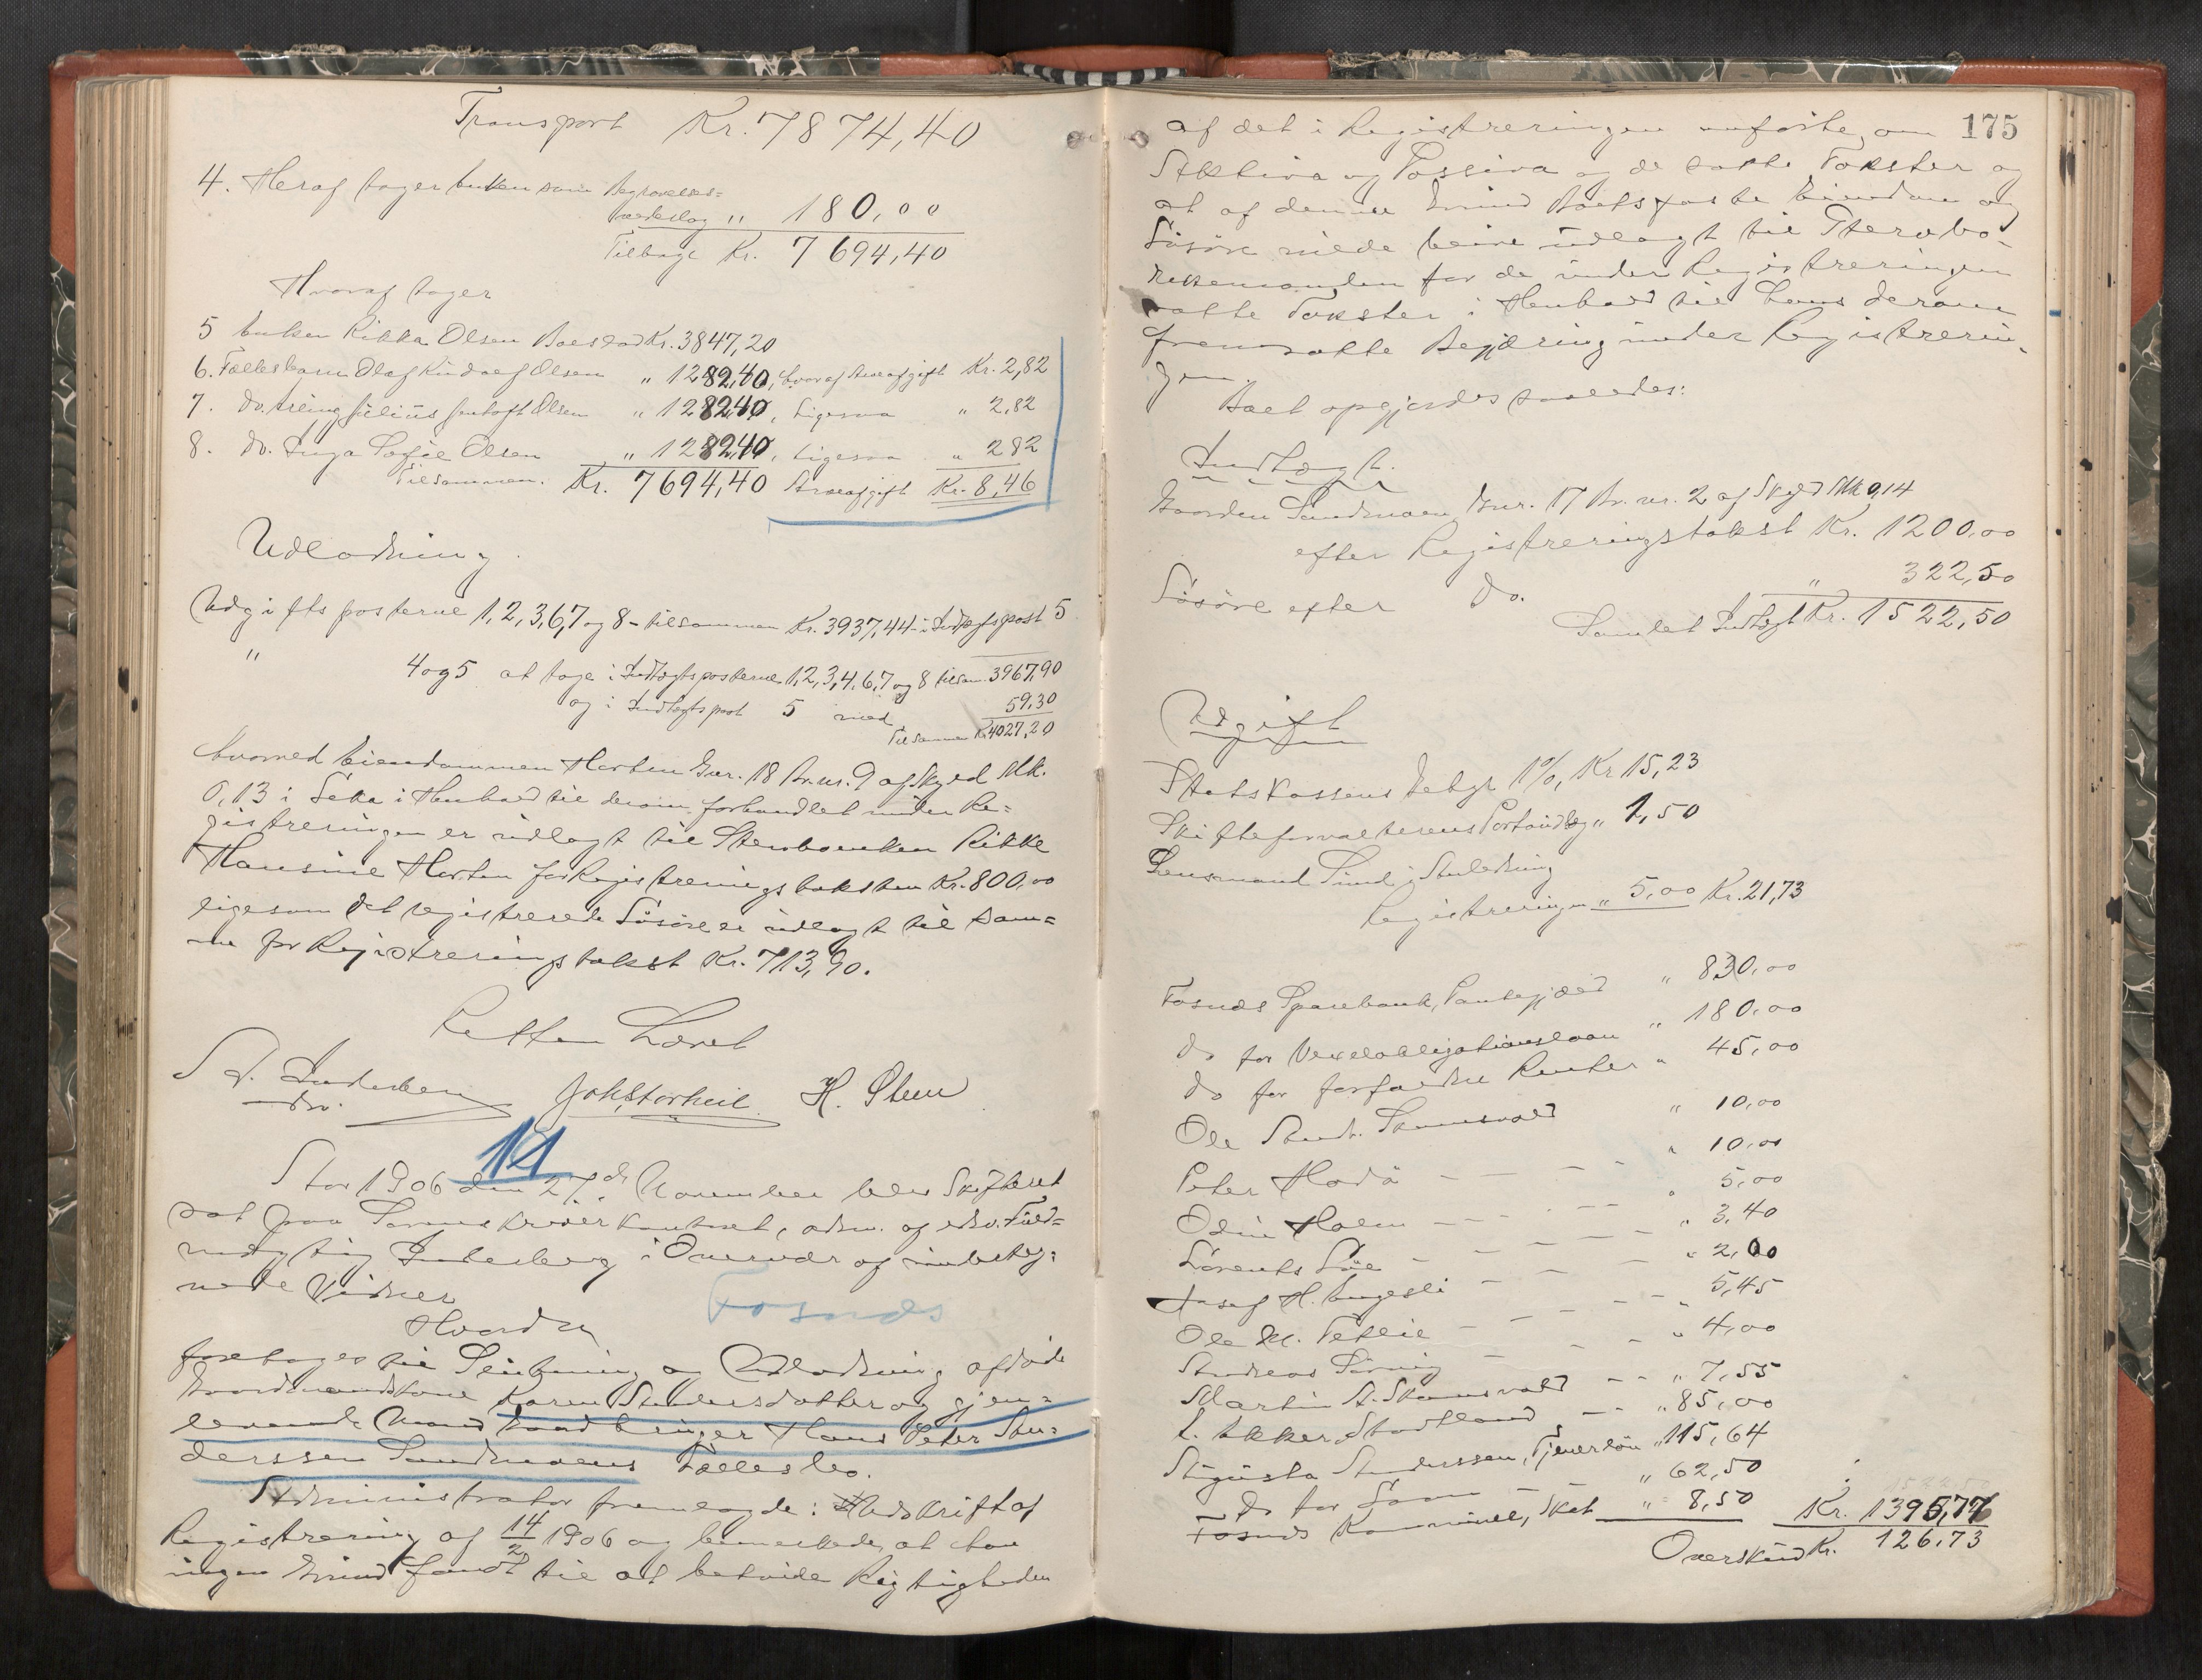 Transport Kr. 7874,40
4. Heraf tager Enken som Begravelses=
vederlag " 180,00
Tilbage Kr. 7694,40
Hvoraf tager
5 Enken Rikka Olsen Boeslod Kr. 3847,20
6. Fællesbarn Olaf Rudolf Olsen " 1282,40, hvoraf Arveafgift Kr. 2,82
7. do. Erling Julius Olsen " 1282,40, Ligesaa " 2,82
8. do. Inga Sofie Olsen " 1282,40, Ligesaa " 282
Tilsammen. Kr. 7694,40 Arveafgift Kr. 8,46
Udlodning.
Udgiftsposterne 1,2,3,6,7 og 8 - tilsammen Kr. 3937,44 - i Indtægtspost 5
" 4 og 5 at tage i Indtægtsposterne 1,2,3,4,6,7 og 8 tilsam. 3967,90
og i Indtægtspost 5 med 59,30
Tilsammen Kr. 4027,20
hvorved Eiendommen Horten Gnr. 18 Br.nr. 9 af Skyld Mk.
0,13 i Leka i Henhold til derom forhandlet under Re=
gistreringen er udlagt til Stervboenken Rikke
Hansine Horten for Registreringstaksten Kr. 800,00
ligesom det registrerede Løsøre er udlagt til sam=
me for Registreringstakst Kr. 713,90.
Retten hævet
H. Steen
11
Aar 1906 den 27de November blev Skifteret
sat paa Sorenskriverkontoret, adm. af edsv. Fuld=
mægtig Inderberg i Overvær af underteg=
nede Vidner
Fosnæs
Hvorda
foretoges til Slutning og Udlodning afdøde
Gaardmandskone Karen Andersdatter og gjen=
levende Mand Gaardbruger Hans Peter An=
derssen Sandmoens Fællesbo.
Administrator fremlagde: Udskrift af
Registrering af 14/2 1906 og bemærkede, at han
ingen Grund fandt til at betvile Rigtigheden
175
af det i Registreringen anførte om
Aktiva og Passiva og de satte Takster og
at af denne Grund Boets faste Eiendom og
Løsøre vilde blive udlagt til Stervbo-
enkemanden for de under Registreringen
satte Takster i Henhold til hans derom
fremsatte Begjæring under Registrerin-
gen.
Boet opgjordes saaledes:
Indtægt.
Gaarden Sandmoen Gnr. 17 Br. nr. 2 af Skyld Mk 0,14
efter Registreringstakst Kr. 1200,00
Løsøre efter Do. " 322,50
Samlet Indtægt Kr. 1522,50
Udgift
Statskassens Gebyr 1%, Kr 15,23
Skifteforvalterens " 1,50
Lensmand Lund i Anledning
Registreringen " 5,00 Kr. 21,73
Fosnæs Sparebank, Pantegjæld " 830,00
Do for Vexelobligationslaan " 180,00
Do for forfaldne Renter " 45,00
Ole Andr. " 10,00
Peter Hadø " 10,00
Odin Holm " 5,00
Lorents " 3,40
Josef H. " 2,00
Ole M. 5,45
Andreas " 4,00
Martin A. " 7,55
" 85,00
Augusta Anderssen, Tjenerløn " 115,64
Do for Laan " 62,50
Fosnæs Kommune, Skat " 8,50 Kr. 1395,77
Overskud Kr. 126,73